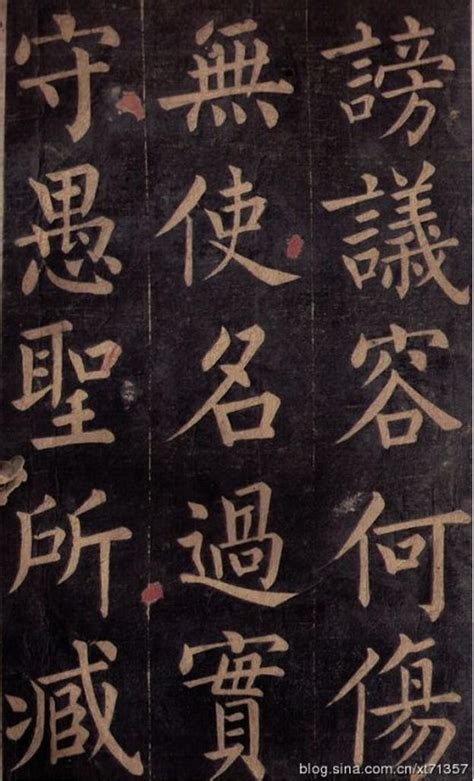 謗議容何傷
無使名過實
守愚聖所臧
blog.sina.com.cn/xt71357